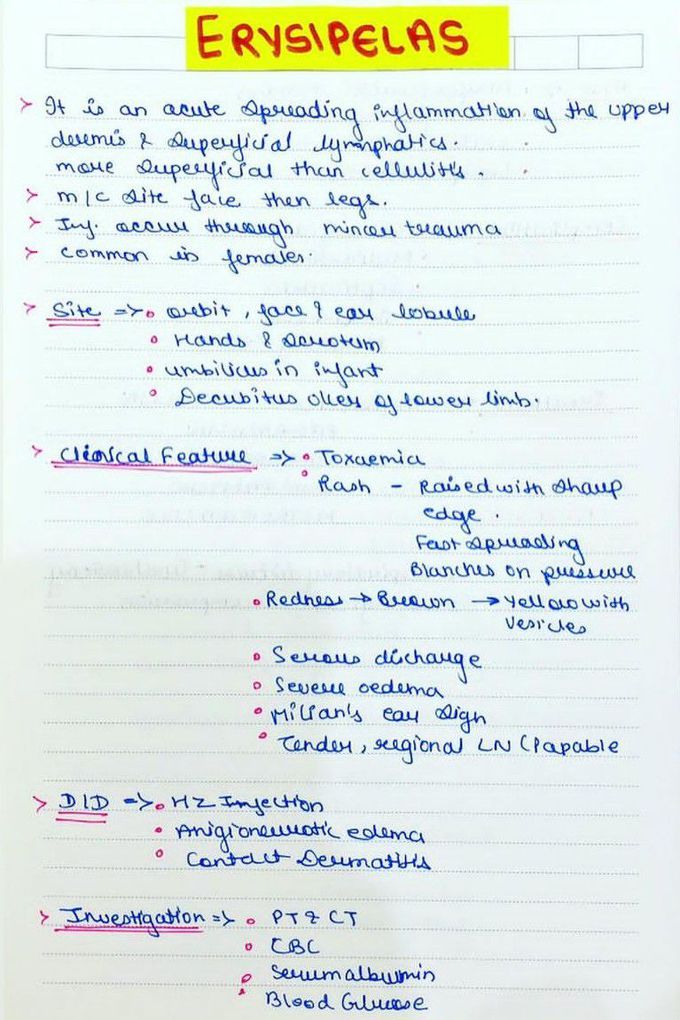 ERYSIPELAS
> It is an acute spreading inflammation of the upper
dermis & superficial lymphatics.
more superficial than cellulitis.
> m/c site face then legs.
> Inf. occur through minor trauma
> common in females.
> Site => • orbit, face & ear lobule
• Hands & scrotum
• umbilicus in infant
• Decubitus ulcer of lower limb.
> Clinical Feature => • Toxaemia
• Rash - Raised with sharp
edge.
Fast spreading
Blanches on pressure
• Redness → Brown → Yellow with
vesicles
• Serous discharge
• Severe oedema
• Milian's ear sign
• Tender, regional LN (Papable
> D/D => • HZ Infection
• Anigioneurotic edema
• Contact Dermatitis
> Investigation => • PT & CT
• CBC
• Serum albumin
• Blood Glucose